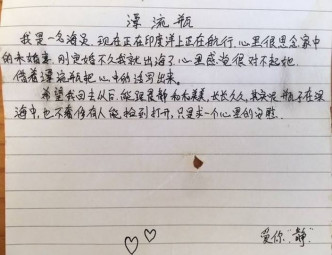 漂流瓶
我是一名海员，现在正在印度洋上正在航行，心里很思念家中
的未婚妻，刚定婚不久我就出海了心里感觉很对不起她。
借着漂流瓶把心中的话写出来。
希望我回去以后，能跟晨静和和美美，长长久久，其实呢瓶子在深
海中，也不看你有人能捡到打开，只是求一个心里的安慰。
爱你"静"